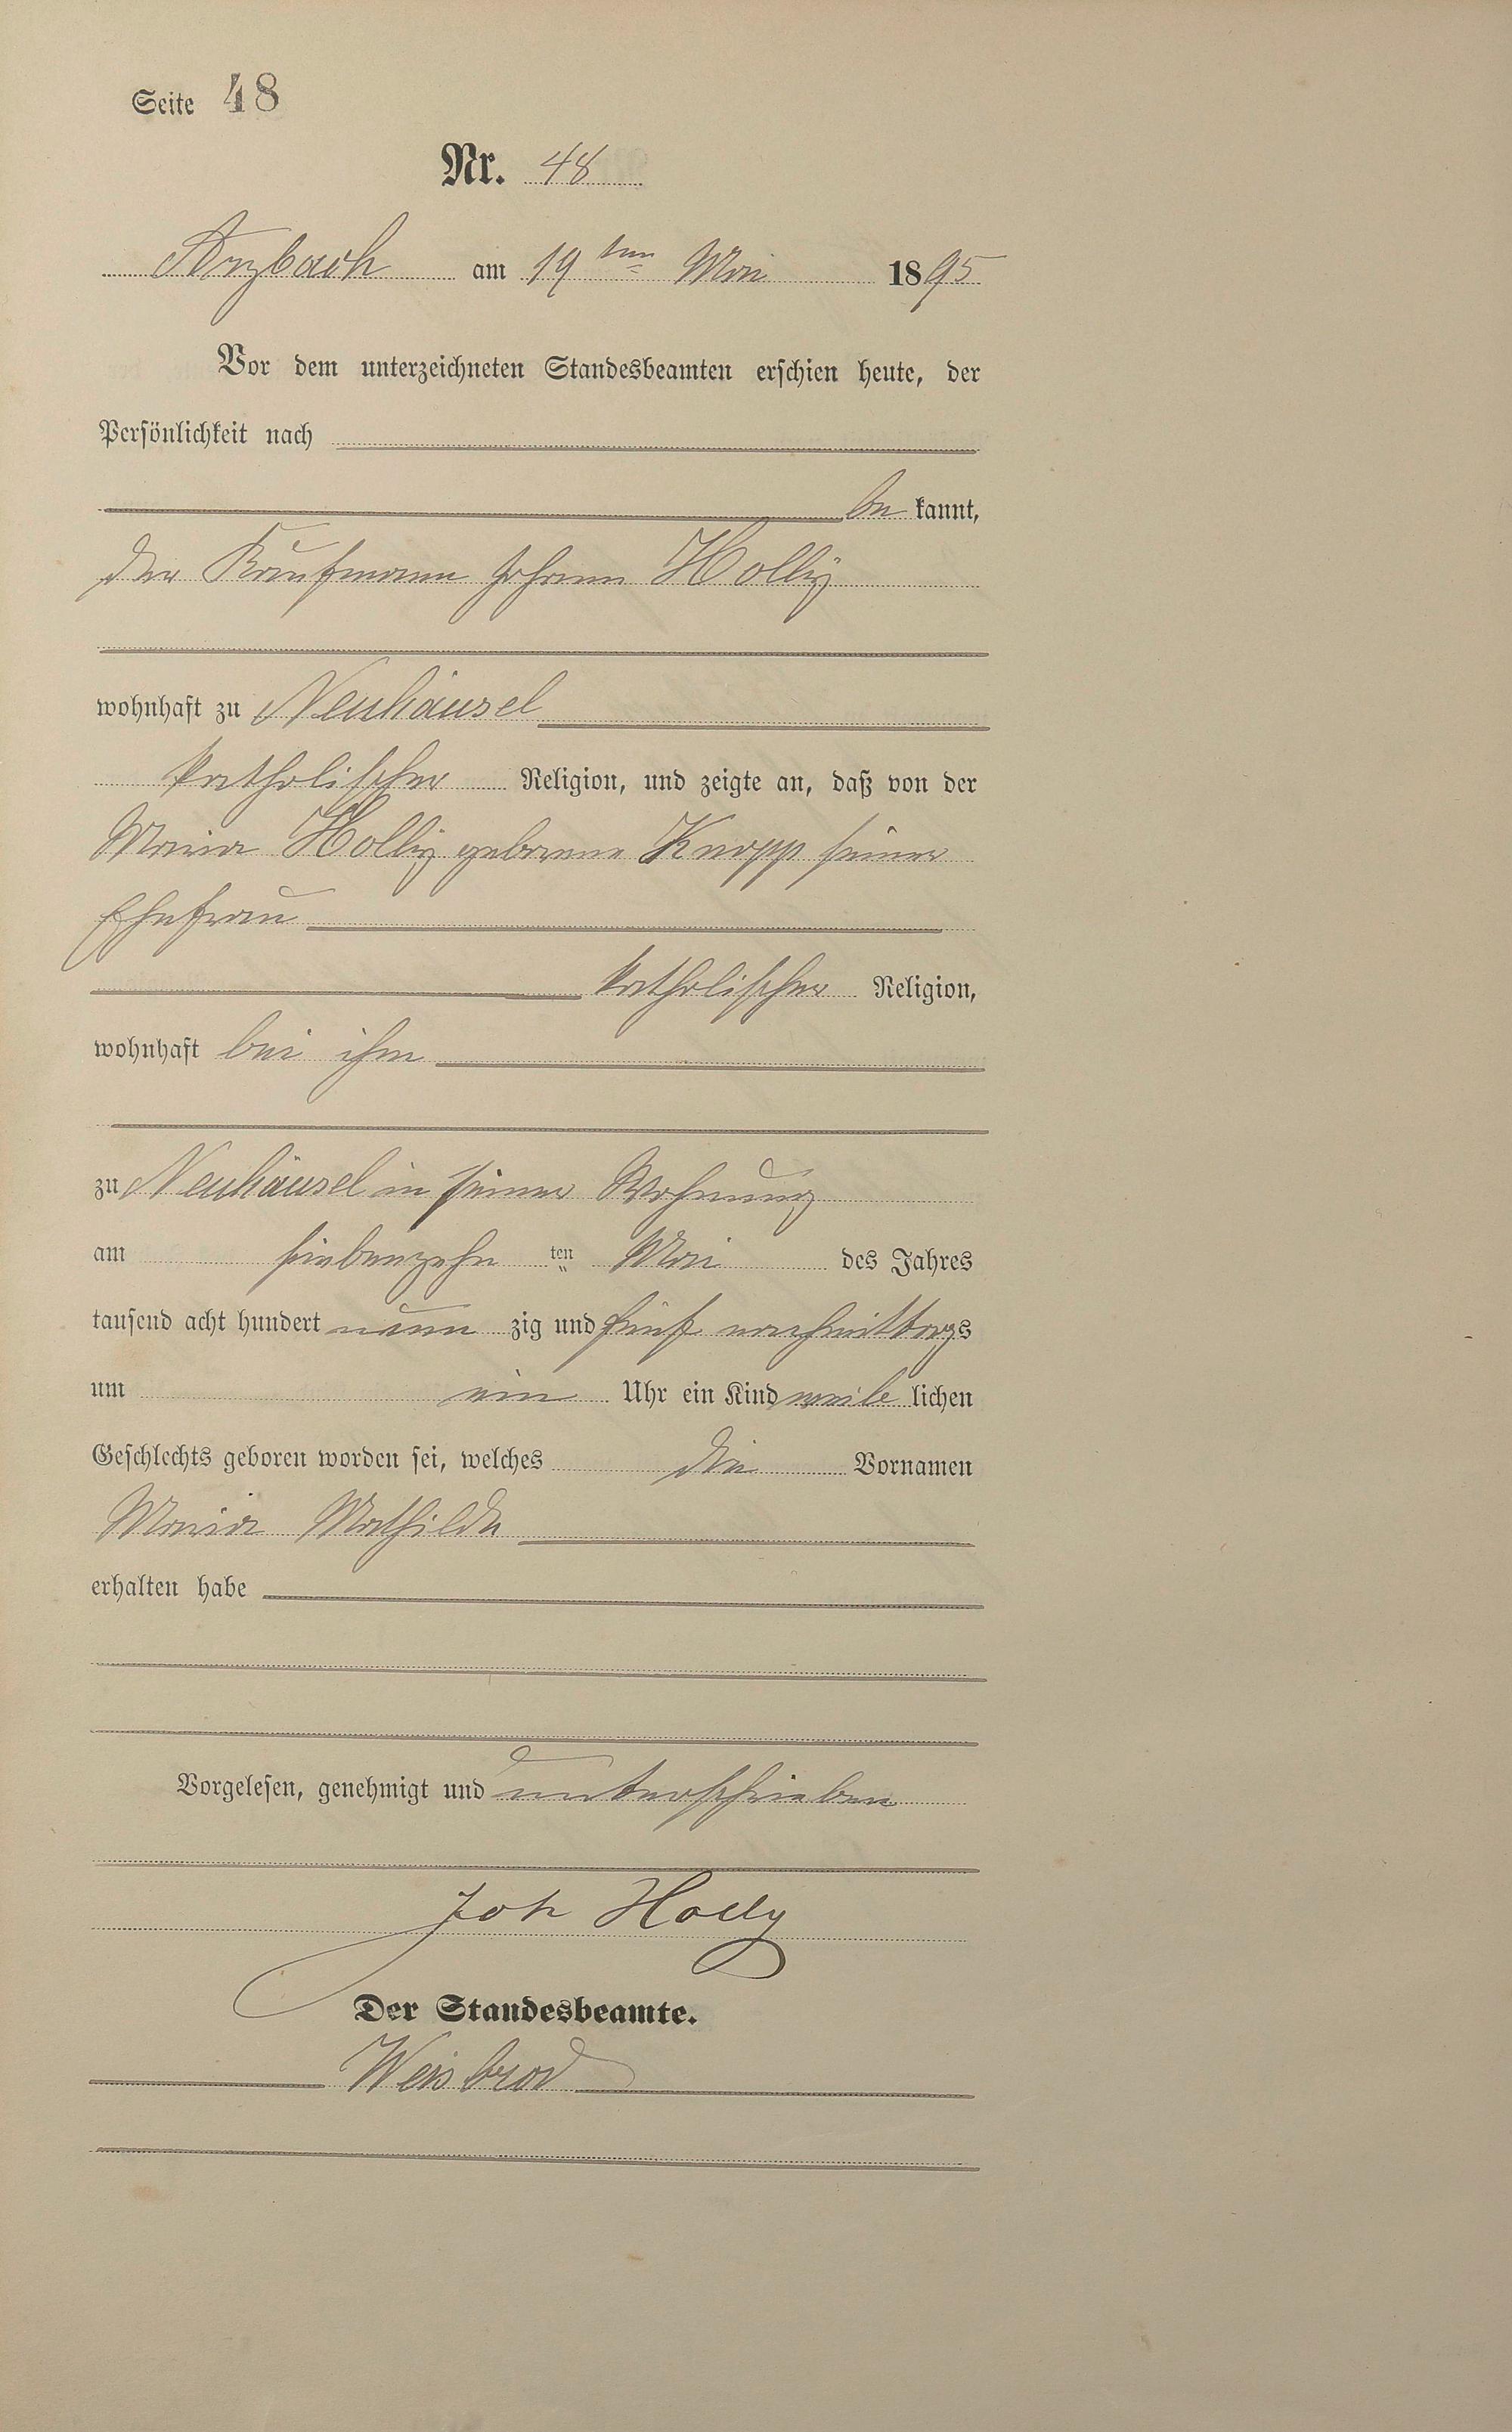 Seite 48
Nr. 48
Arzbach am 19ten Mai 1895
Vor dem unterzeichneten Standesbeamten erschien heute, der
Persönlichkeit nach
be kannt,
der Kaufmann Johann Holly
wohnhaft zu Neuhäusel
katholischer Religion, und zeigte an, daß von der
Maria Holly geborene Knopp seiner
Ehefrau
katholischer Religion,
wohnhaft bei ihm
zu Neuhäusel in seiner Wohnung
am siebenzehn ten Mai des Jahres
tausend acht hundert neun zig und fünf nachmittags
um ein Uhr ein Kind weib lichen
Geschlechts geboren worden sei, welches die Vornamen
Maria Mathilde
erhalten habe
Vorgelesen, genehmigt und unterschrieben
Joh Holly
Der Standesbeamte.
Weisbrod